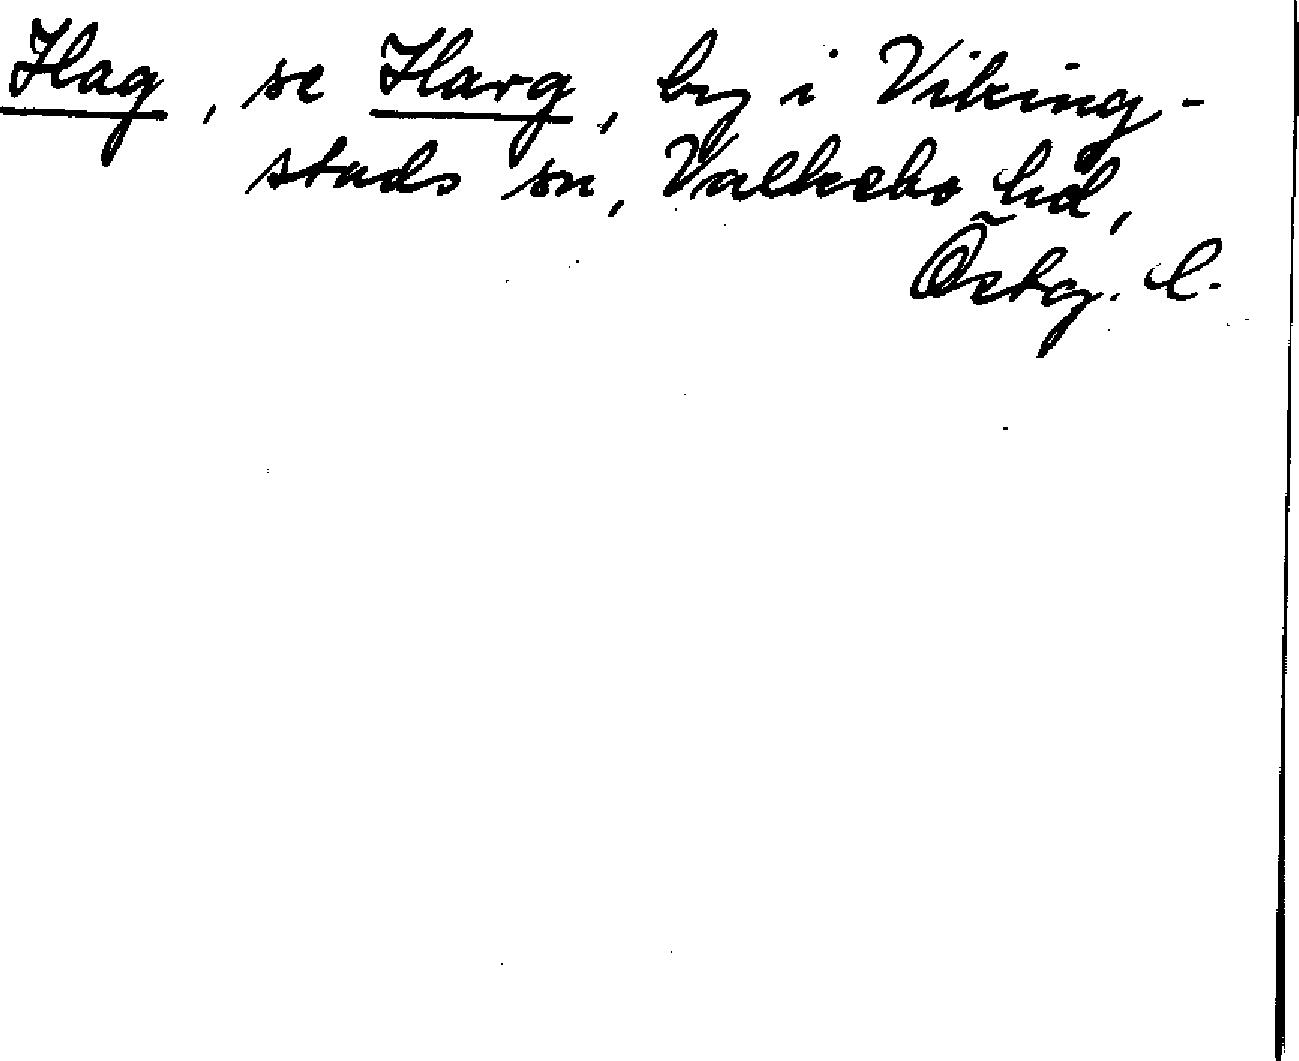 Hag, se Harg, by i Viking-
stads sn, Valkebo hd,
Östg. l.